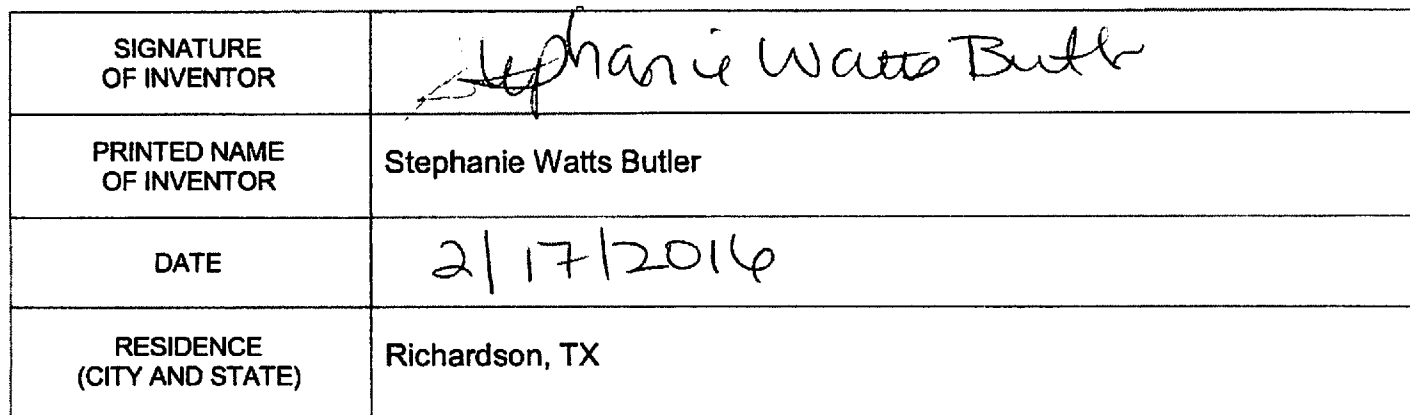 SIGNATURE
OF INVENTOR
Stephanie Watts Butler
PRINTED NAME
OF INVENTOR
Stephanie Watts Butler
DATE
2/17/2016
RESIDENCE
(CITY AND STATE)
Richardson, TX